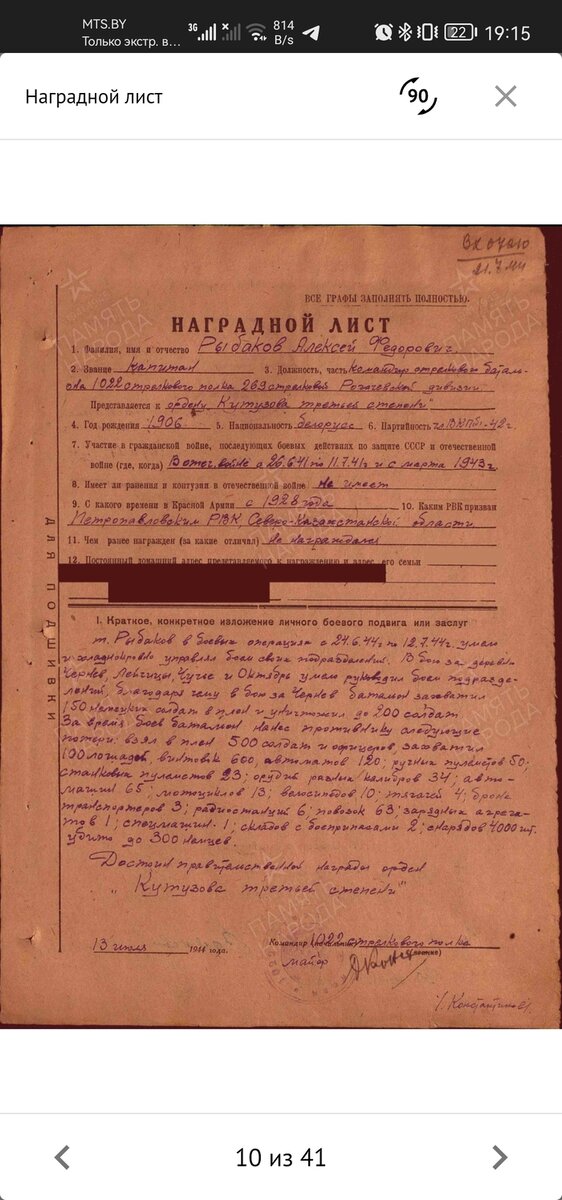 MTS.BY
Только экстр. в...
3G
814
B/s
22
19:15
Наградной лист
90
21.7.44
ВСЕ ГРАФЫ ЗАПОЛНЯТЬ ПОЛНОСТЬЮ.
НАГРАДНОЙ ЛИСТ
1. Фамилия, имя и отчество Рыбаков Алексей Федорович
2. Звание капитан 3. Должность, часть командир стрелкового баталь-
она 1022 стрелкового полка 269 стрелковой Рогачевской дивизии
Представляется к ордену "Кутузова третьей степени"
4. Год рождения 1906 5. Национальность белорус 6. Партийность чл. ВКП(б)-42г.
7. Участие в гражданской войне, последующих боевых действиях по защите СССР и отечественной
войне (где, когда) В отеч. войне с 26.6.41 по 11.7.41г и с марта 1943г
8. Имеет ли ранения и контузии в отечественной войне Не имеет
9. С какого времени в Красной Армии с 1928 года 10. Каким РВК призван
Петропавловским РВК Северо-Казахстанской области
11. Чем ранее награжден (за какие отличия) Не награждался
12. Постоянный домашний адрес представляемого к награждению и адрес его семьи
ДЛЯ ПОДШИВКИ
I. Краткое, конкретное изложение личного боевого подвига или заслуг
т. Рыбаков в боевых операциях с 24.6.44г по 12.7.44г. умело
и хладнокровно управлял боем своих подразделений. В бою за деревни
Чернев, Лекчицы, Чугис и Октябрь умело руководил боем подразде-
лений, благодаря чему в бою за Чернев батальон захватил
150 немецких солдат в плен и уничтожил до 200 солдат.
За время боев батальон нанес противнику следующие
потери: взял в плен 500 солдат и офицеров, захватил
лошадей, винтовок 600, автоматов 120; ручных пулеметов 50;
станковых пулеметов 23; орудий разных калибров 34; авто-
машин 65; мотоциклов 13; велосипедов 10; тягачей 4; броне
транспортеров 3; радиостанций 6; повозок 63; зарядных агрега-
тов 1; спецмашин 1; складов с боеприпасами 2; снарядов 4000 шт.
убито до 300 немцев.
Достоин правительственной награды орден
"Кутузова третьей степени"
13 июля 1944 года. Командир 1022 стрелкового полка
майор
ПАМЯТЬ НАРОДА
10 из 41